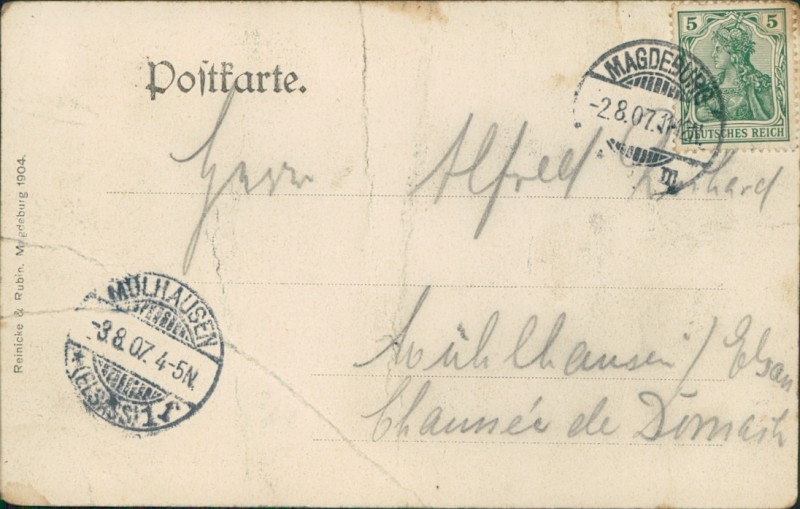 Postkarte.
5 5
DEUTSCHES REICH
MAGDEBURG
-2.8.07.
m
Herrn Alfred
MÜLHAUSEN
-3.8.07. 4-5N.
*(ELSASS)1 f
Mühlhausen/Elsan
Chaussée de Dornach
Reinicke & Rubin, Magdeburg 1904.